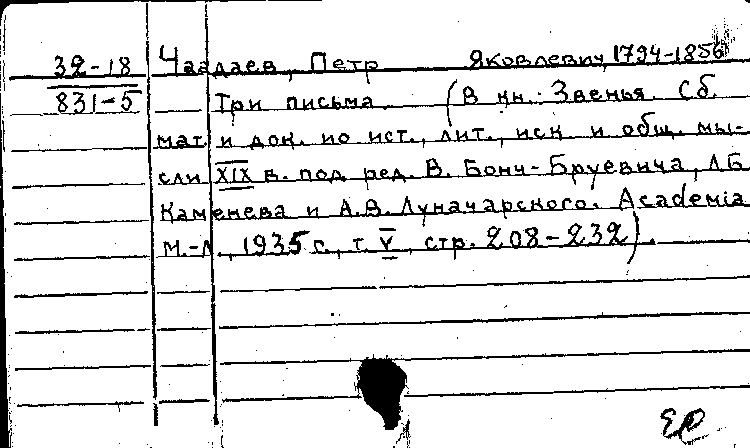 32-18 Чаадаев, Петр Яковлевич, 1794-1856
831-5 Три письма (В кн.: Звенья. Сб.
мат. и док. по ист., лит., иск. и общ. мы-
сли XIX в. под ред. В. Бонч-Бруевича, Л.Б.
Каменева и А.В. Луначарского. Academia
М.-Л., 1935 г., т. V, стр. 208-232).